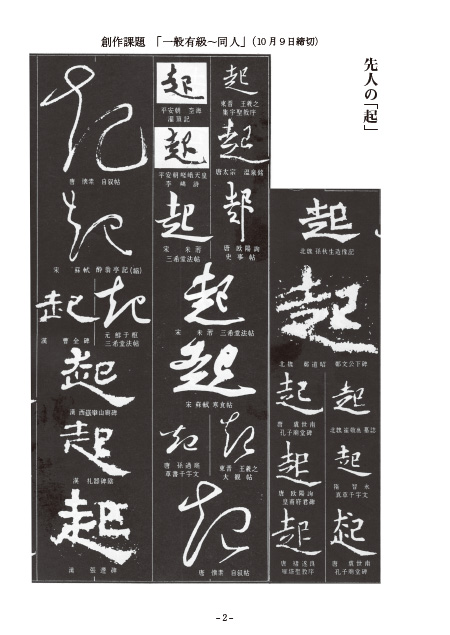 創作課題 「一般有級～同人」(10月9日締切)
先人の「起」
起
北魏 孫秋生造像記
起
北魏 鄭道昭 鄭文公下碑
起
唐 虞世南
孔子廟堂碑
起
唐 欧陽詢
皇甫府君碑
起
唐 褚遂良
雁塔聖教序
起
起
隋 智永
真草千字文
起
唐 虞世南
孔子廟堂碑
起
東晋 王羲之
集字聖教序
起
唐太宗 温泉銘
起
唐 欧陽詢
史事帖
起
平安朝 空海
灌頂記
起
平安朝 嵯峨天皇
李嶠詩
起
宋 米芾
三希堂法帖
起
宋 米芾 三希堂法帖
起
宋 蘇軾 寒食帖
起
東晋 王羲之
大観帖
起
唐 孫過庭
草書千字文
起
唐 懐素 自叙帖
起
唐 懐素 自叙帖
起
宋 蘇軾 酔翁亭記(編)
起
元 鮮于枢
三希堂法帖
起
漢 曹全碑
起
漢 西嶽華山廟碑
起
漢 礼器碑陰
起
漢 張遷碑
- 2 -